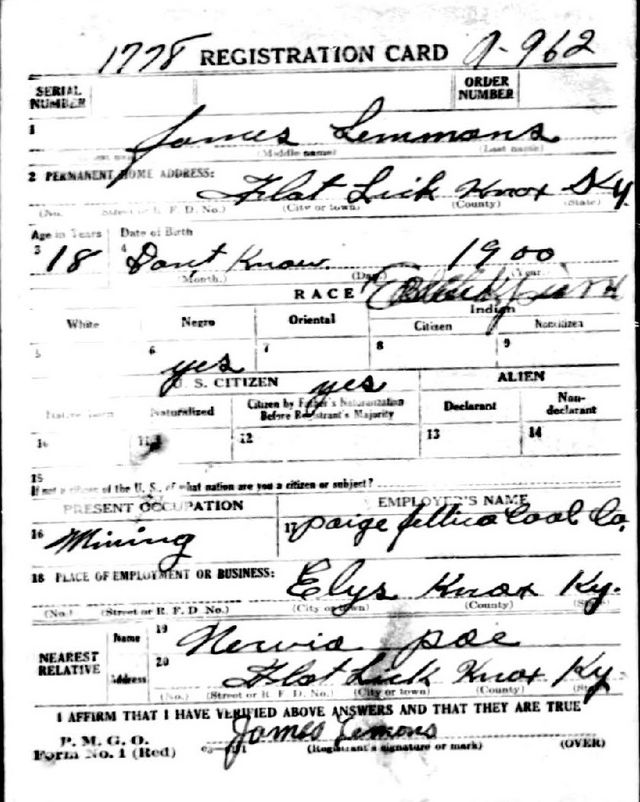 1778 REGISTRATION CARD A-962
SERIAL NUMBER ORDER NUMBER
1 James Lemmons
(Middle name) (Last name)
2 PERMANENT HOME ADDRESS: Flat Lick Knox Ky
(No.) (Street or R. F. D. No.) (City or town) (County) (State)
Age in Years Date of Birth
3 18 4 Don't Know 1900
(Month.) (Day.) (Year.)
RACE
White Negro Oriental Indian
Citizen Noncitizen
5 6 yes 7 8 9
U. S. CITIZEN yes ALIEN
Native Born Naturalized Citizen by Father's Naturalization Before Registrant's Majority Declarant Non-declarant
10 11 12 13 14
15
If not a citizen of the U. S., of what nation are you a citizen or subject?
PRESENT OCCUPATION EMPLOYER'S NAME
16 Mining 17 Paige Coal Co.
18 PLACE OF EMPLOYMENT OR BUSINESS: Elys Knox Ky.
(No.) (Street or R. F. D. No.) (City or town) (County) (State)
NEAREST RELATIVE Name 19 Nervia Poe
Address 20 Flat Lick Knox Ky
(No.) (Street or R. F. D. No.) (City or town) (County) (State)
I AFFIRM THAT I HAVE VERIFIED ABOVE ANSWERS AND THAT THEY ARE TRUE
P. M. G. O. James Lemons
Form No. 1 (Red) (Registrant's signature or mark) (OVER)